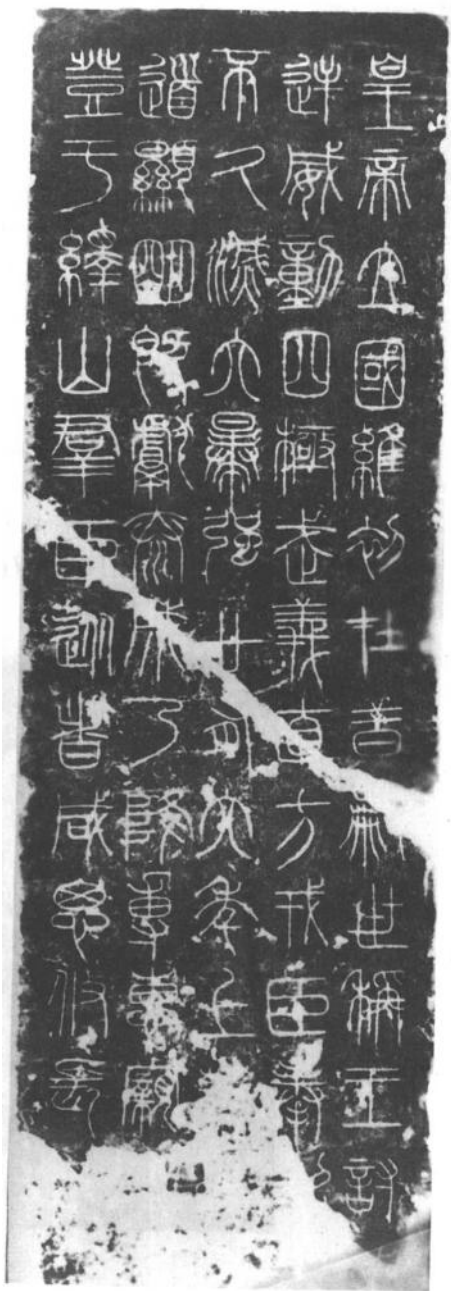 皇帝立國維初在昔嗣世稱王討
逆威動四極武義直方戎臣奉
不久滅六暴強廿有六年上
道顯明既獻泰成乃降專惠寴
登于繹山羣臣從者咸思攸長